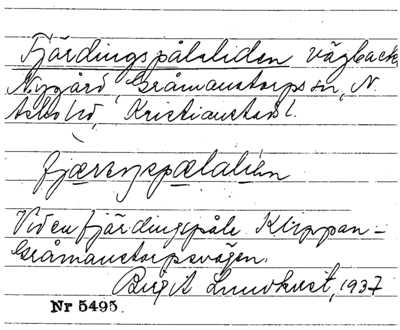 Fjärdingspålsliden vägbacke
Nygård, Gråmanstorps sn, N.
Åsbo hd, Kristianstads l.
fjæreŋspælalíən
Vid en fjärdingspåle Klippan-
Gråmanstorpsvägen.
Birgit Lundkvist, 1937
Nr 5495.